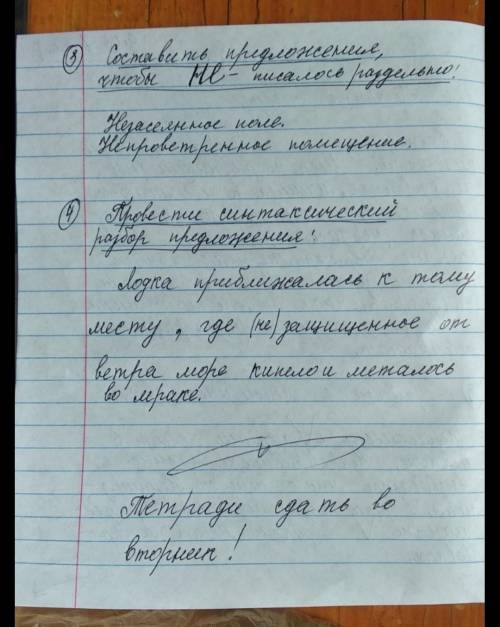 ③ Составить предложения,
чтобы НЕ - писалось раздельно!
Незасеянное поле.
Непроветренное помещение.
④ Провести синтаксический
разбор предложения!
Лодка приближалась к тому
месту, где (не)защищенное от
ветра море кипело и металось
во мраке.
Тетради сдать во
вторник!